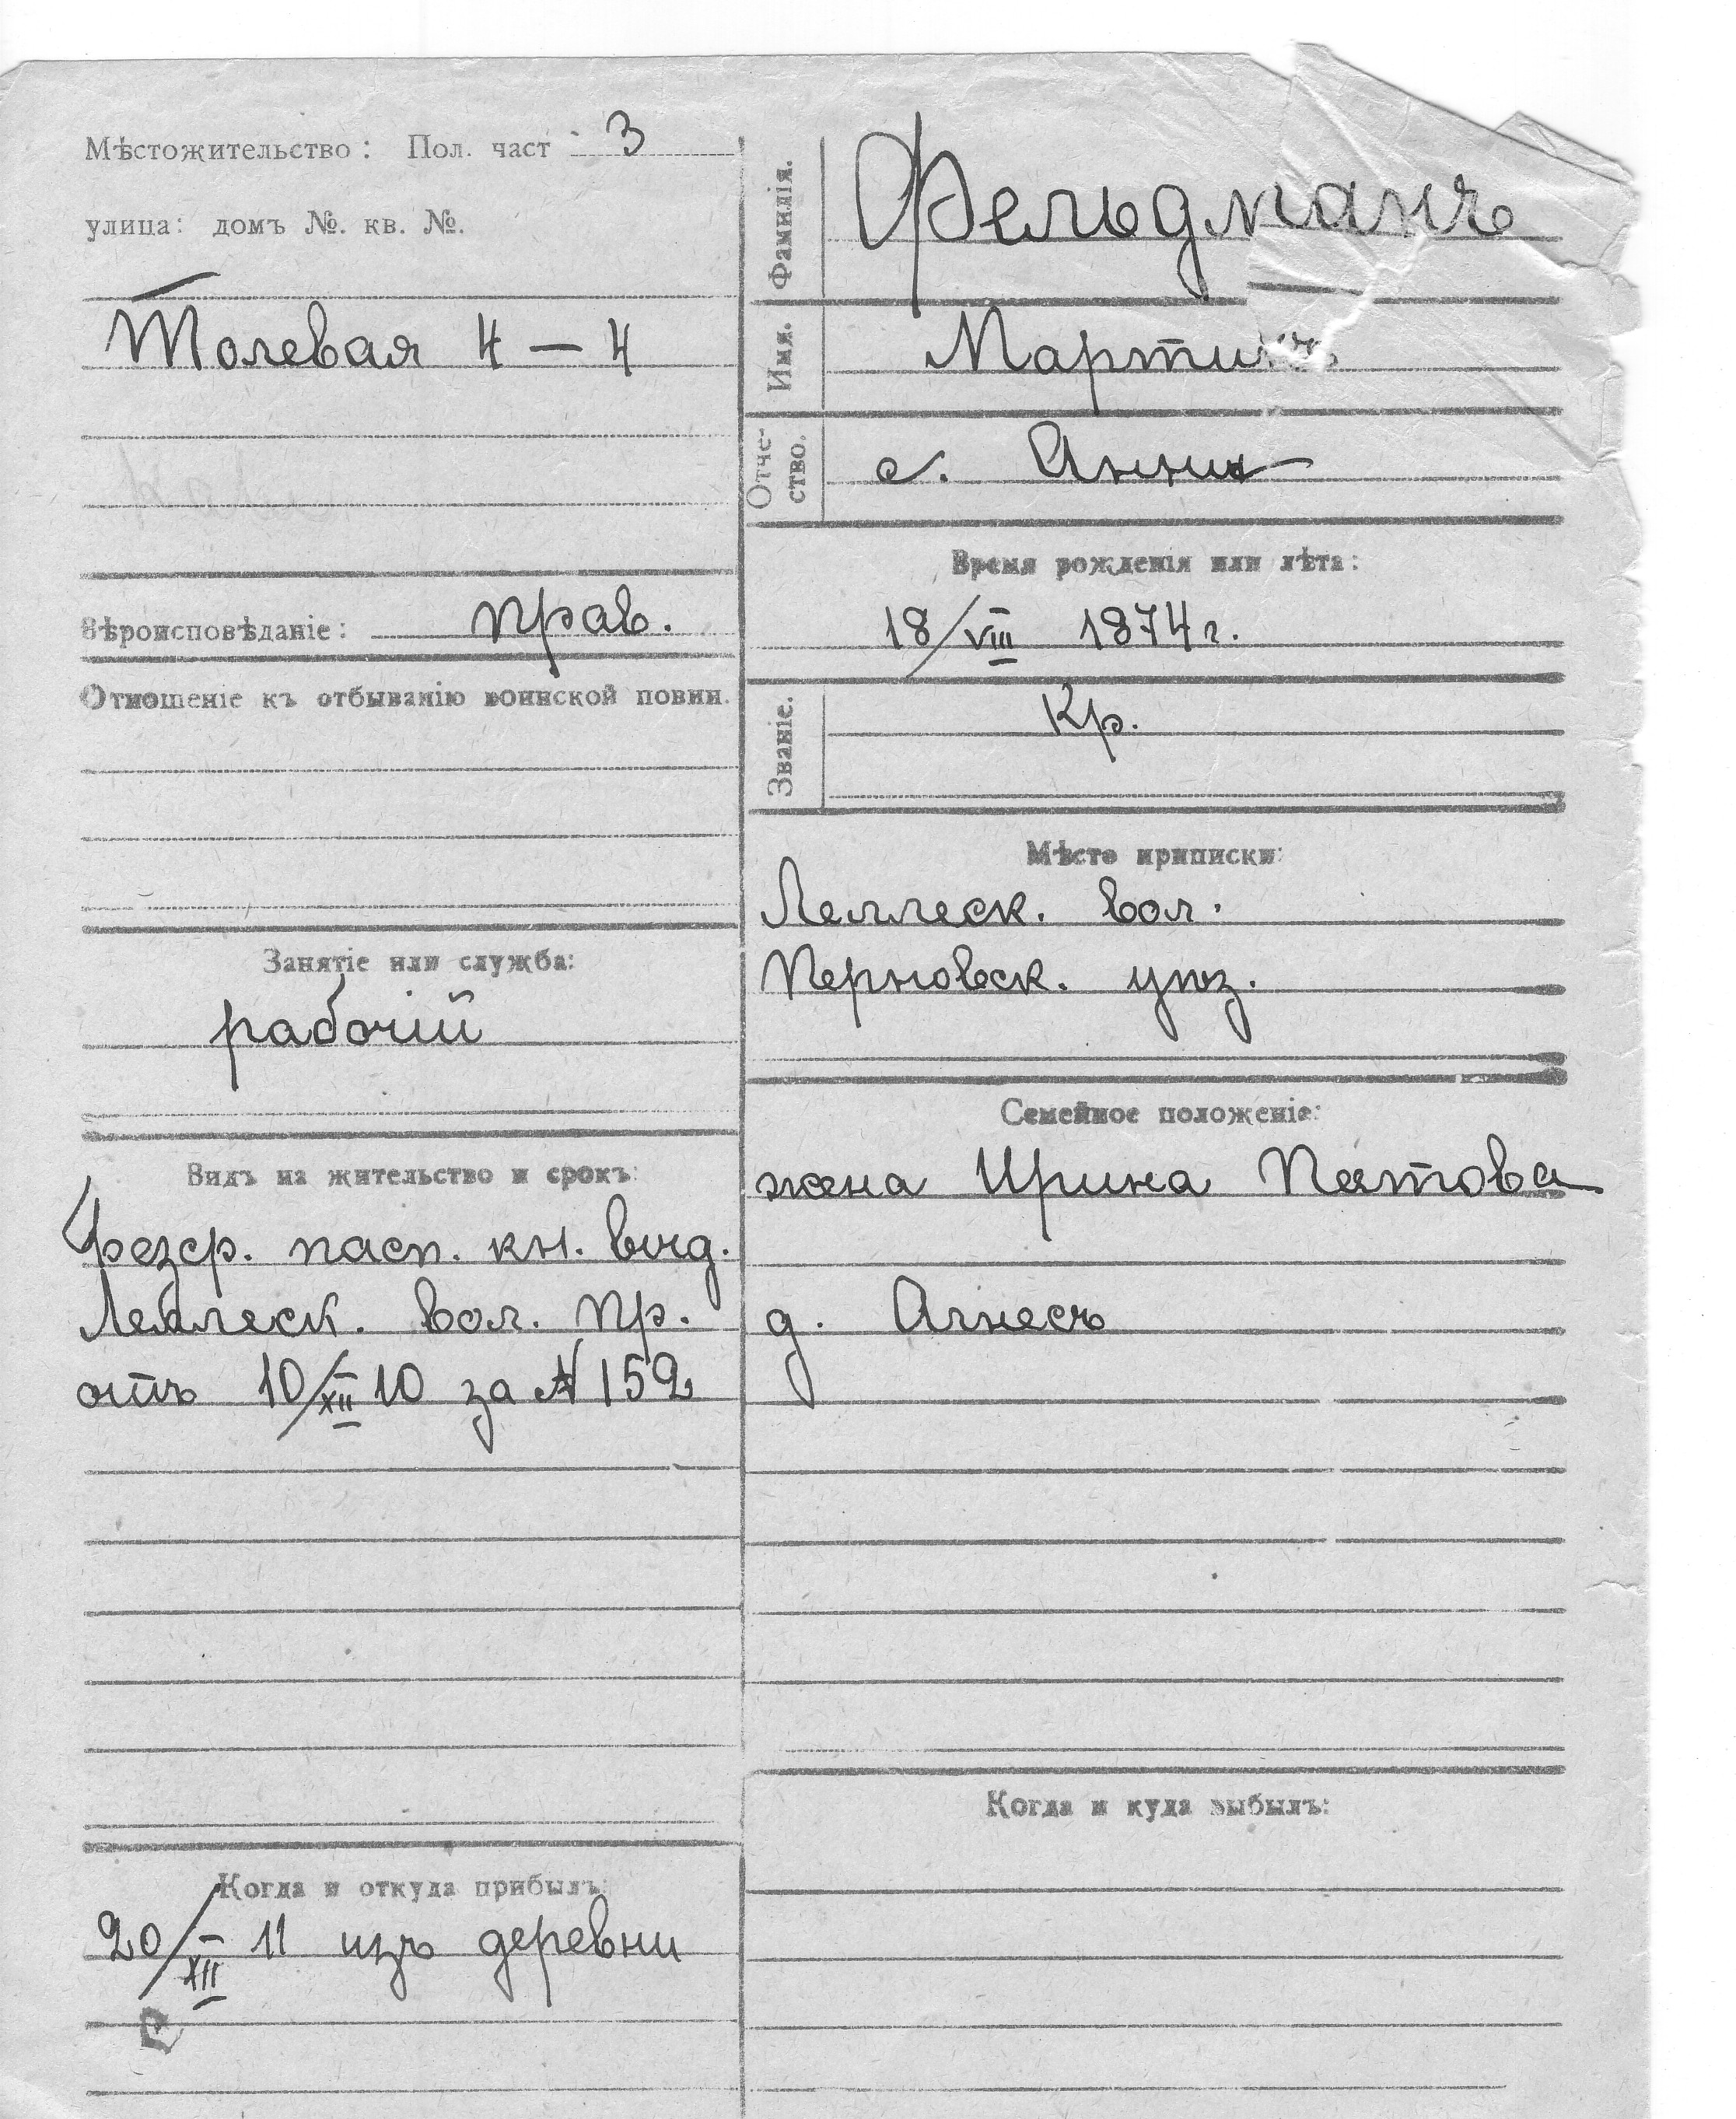 Мѣстожительство: Пол. част 3
улица: домъ №. кв. №.
Толевая 4 – 4
Вѣроисповѣданіе: прав.
Отношеніе къ отбыванію воинской повин.
Занятіе или служба:
рабочій
Видъ на жительство и срокъ:
безср. пасп. кн. выд.
Леллеск. вол. пр.
отъ 10/XII 10 за № 152
Когда и откуда прибылъ:
20/XII 11 изъ деревни
Фамилія. Фельдманъ
Имя. Мартинъ
Отчество. с. Анни
Время рожденія или лѣта:
18/VIII 1874 г.
Званіе. Кр.
Мѣсто приписки:
Леллеск. вол.
Перновск. уѣз.
Семейное положеніе:
жена Ирина
д. Агнесъ
Когда и куда выбылъ: